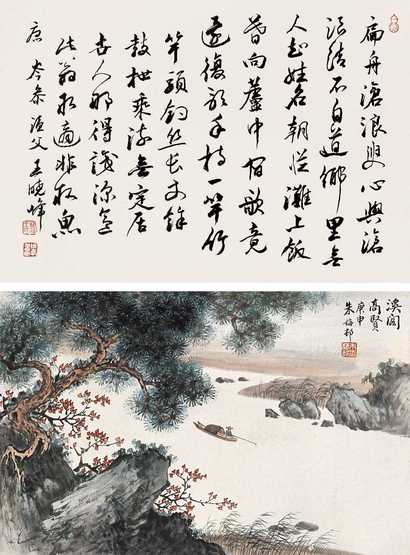 扁舟滄浪叟心與滄
浪清不自道鄉里無
人知姓名朝從灘上飯
暮向蘆中宿歌竟
還復歌手持一竿竹
竿頭釣絲長丈餘
鼓枻乘流無定居
世人那得識深意
此翁取適非取魚
唐 岑參漁父 王曉峰
溪閣
高賢
庚申
朱梅邨